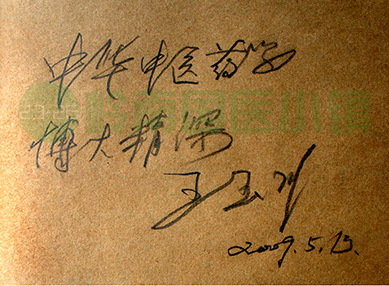 中华中医药学
博大精深
王玉川
2009.5.13.